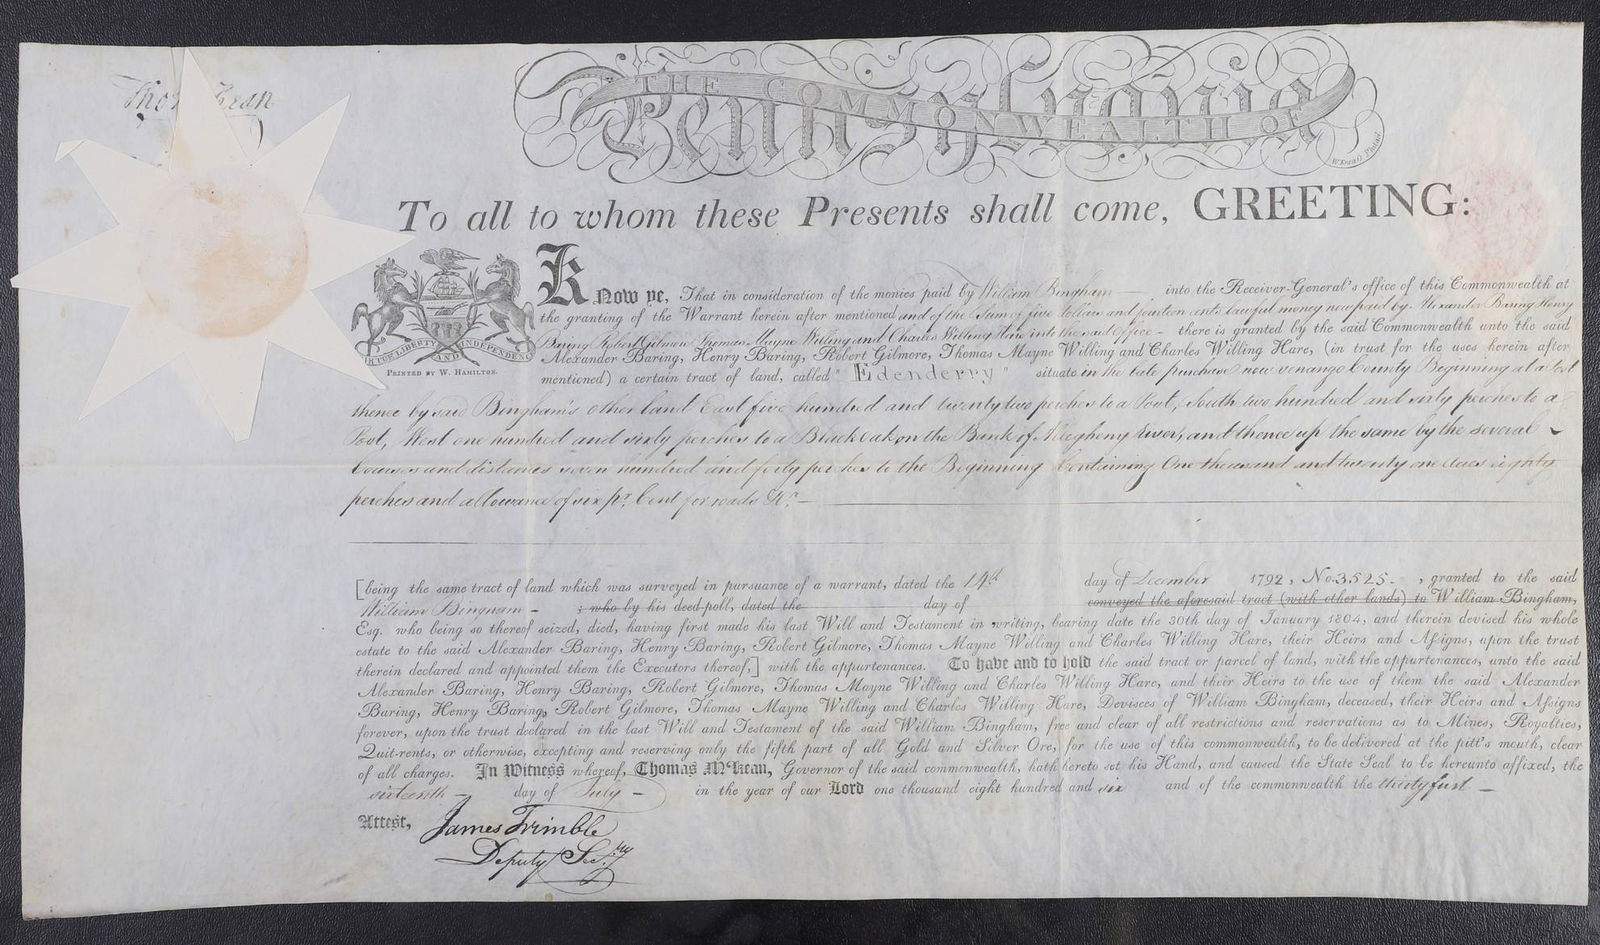 Tho Kean
THE COMMONWEALTH OF
Pennsylvania
To all to whom these Presents shall come, GREETING:
VIRTUE LIBERTY AND INDEPENDENCE
PRINTED BY W. HAMILTON.
Know ye, That in consideration of the monies paid by William Bingham — into the Receiver-General's office of this Commonwealth at
the granting of the Warrant herein after mentioned and of the Sum of five dollars and fourteen cents lawful money now paid by Alexander Baring Henry
Baring Robert Gilmore Thomas Mayne Willing and Charles Willing Hare into the said office - there is granted by the said Commonwealth unto the said
Alexander Baring, Henry Baring, Robert Gilmore, Thomas Mayne Willing and Charles Willing Hare, (in trust for the uses herein after
mentioned) a certain tract of land, called "Edenderry" situate in the late purchase now venango County Beginning at a Post
thence by said Bingham's other land East five hundred and twenty two perches to a Post, South two hundred and sixty perches to a
Post, West one hundred and sixty perches to a Black oak on the Bank of Allegheny River, and thence up the same by the several
Courses and distances seven hundred and forty perches to the Beginning Containing One thousand and twenty one acres eighty
perches and allowance of six pr. Cent for roads &c. —
[being the same tract of land which was surveyed in pursuance of a warrant, dated the 14th day of December 1792, No. 3525. , granted to the said
William Bingham - : who by his deed-poll, dated the day of conveyed the aforesaid tract (with other lands) to William Bingham,
Esq. who being so thereof seized, died, having first made his last Will and Testament in writing, bearing date the 30th day of January 1804, and therein devised his whole
estate to the said Alexander Baring, Henry Baring, Robert Gilmore, Thomas Mayne Willing and Charles Willing Hare, their Heirs and Assigns, upon the trust
therein declared and appointed them the Executors thereof,] with the appurtenances. To have and to hold the said tract or parcel of land, with the appurtenances, unto the said
Alexander Baring, Henry Baring, Robert Gilmore, Thomas Mayne Willing and Charles Willing Hare, and their Heirs to the use of them the said Alexander
Baring, Henry Baring, Robert Gilmore, Thomas Mayne Willing and Charles Willing Hare, Devisees of William Bingham, deceased, their Heirs and Assigns
forever, upon the trust declared in the last Will and Testament of the said William Bingham, free and clear of all restrictions and reservations as to Mines, Royalties,
Quit-rents, or otherwise, excepting and reserving only the fifth part of all Gold and Silver Ore, for the use of this commonwealth, to be delivered at the pitt's mouth, clear
of all charges. In Witness whereof, Thomas M'Kean, Governor of the said commonwealth, hath hereto set his Hand, and caused the State Seal to be hereunto affixed, the
sixteenth - day of July - in the year of our Lord one thousand eight hundred and six and of the commonwealth the thirty first —
Attest, James Trimble
Deputy Secy.